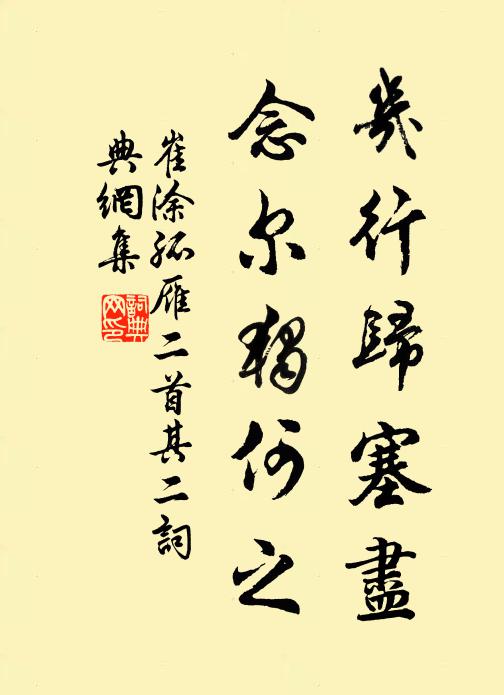 幾行歸塞盡
念尔獨何之
崔涂孤雁二首其二詞
典網集
詞典网印